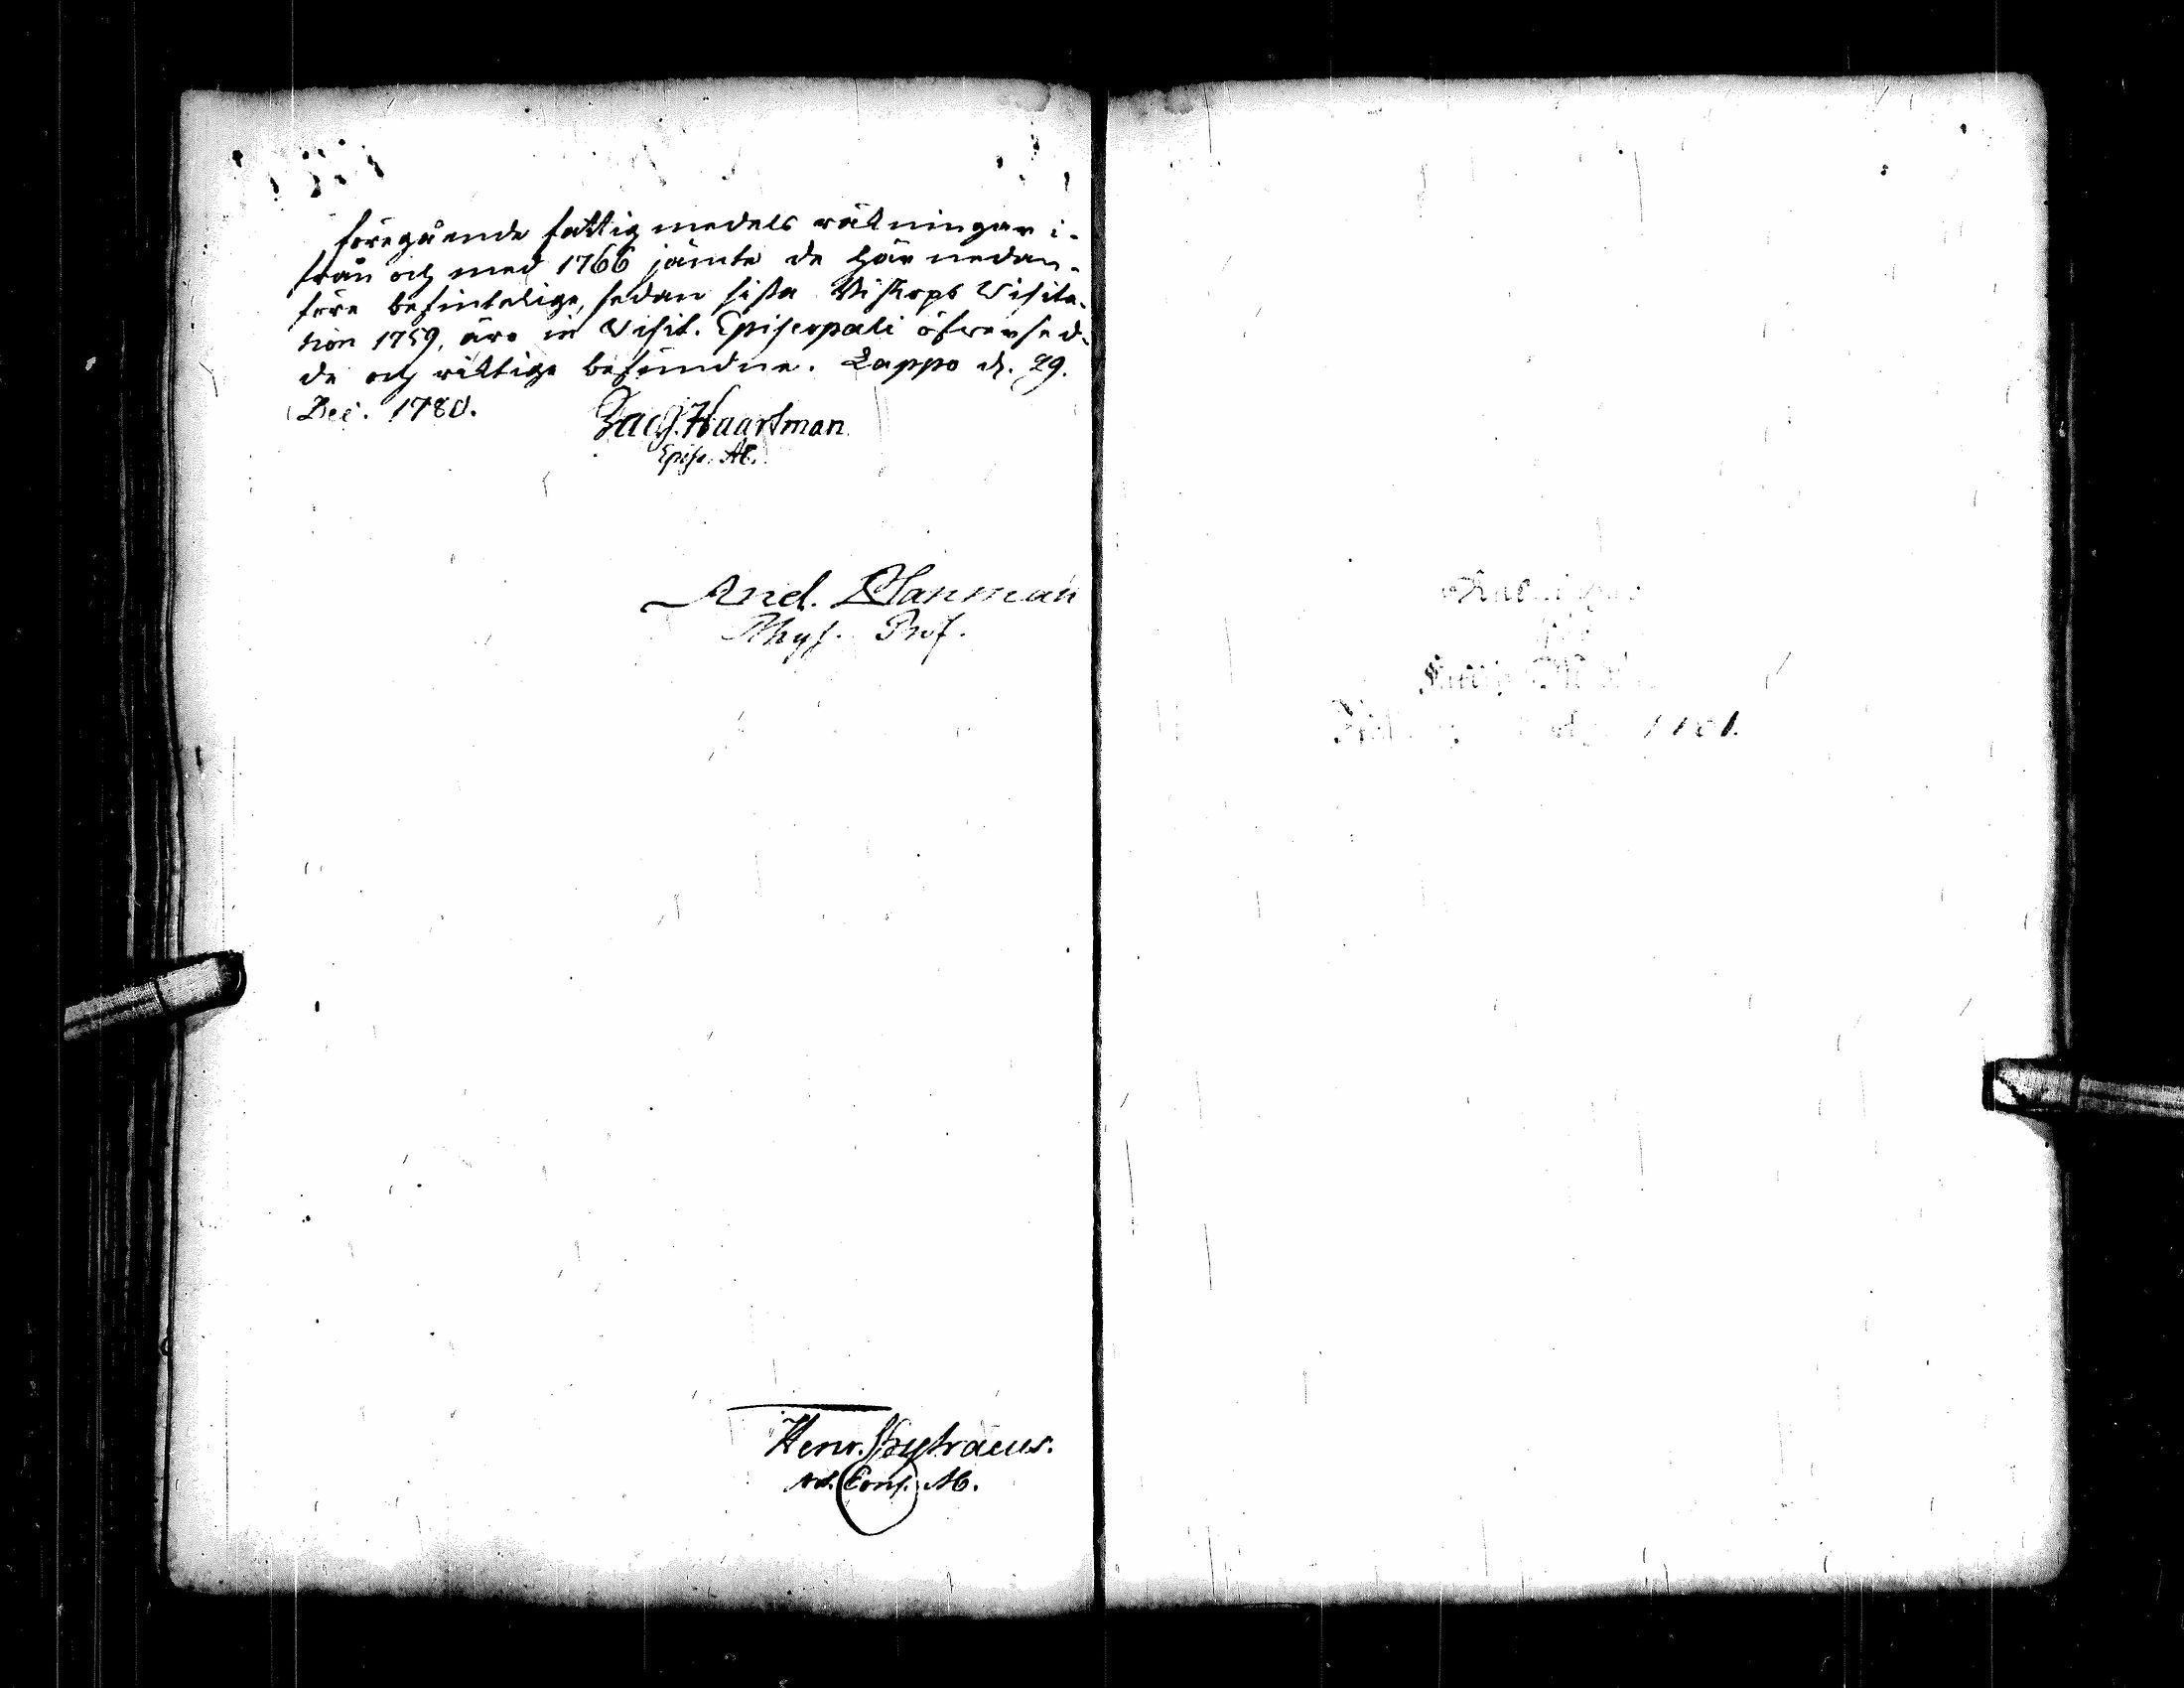 föregående fattig medels räkningar i-
från och med 1766 jämte de här nedan-
före befintelige, sedan sista Biskops Visita-
tion 1759, äro in Visit. Episcopali öfversed-
de och riktige befundne. Lappo d. 29.
Dec. 1780.
Zach. Haartman
Episc. Ab.
And. Planman
Phys. Prof.
Henr.
Cons. Ab.